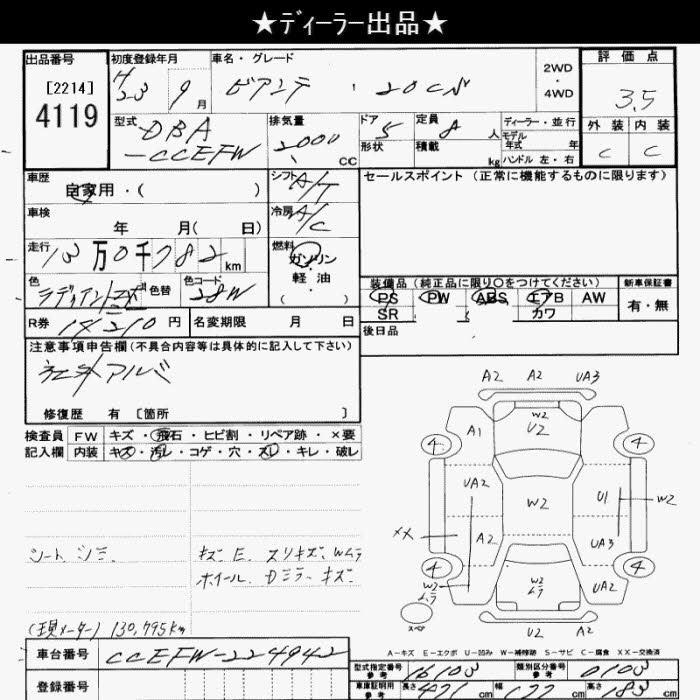 ★ディーラー出品★
出品番号 初度登録年月 車名・グレード 2WD・4WD 評価点
[2214] H23 9月 ビアンテ 20CS 3.5
4119
型式 DBA-CCEFW 排気量 2000cc ドア 5 定員 8人 ディーラー・並行
形状 積載 kg モデル年式 年
ハンドル 左・右
外装 内装
C C
車歴 自家用・( ) シフト A/T セールスポイント(正常に機能するものに限ります)
車検 年 月( 日) 冷房 A/C
走行 13万0千782km 燃料 ガソリン・軽油 ( )
色 色替 色コード 28W
装備品(純正品に限り○をつけてください) 新車保証書
PS PW ABS エアB AW 有・無
SR カワ
R券 円 名変期限 月 日 後日品
注意事項申告欄(不具合内容等は具体的に記入して下さい)
社外アルミ
修復歴 有 [箇所 ]
検査員 FW キズ・飛石・ヒビ割・リペア跡・×要
記入欄 内装 キズ・汚レ・コゲ・穴・スレ・キレ・破レ
シート シミ キズ E スリキズ、Wムラ
ホイール、Dミラーキズ
(現メーター) 130,795km
A2 A2 UA3
W2
A1 U2
4 4
UA2 W2 U1 W2
XX A2 UA3
4 4
W2ムラ W2ムラ UA2
スペア U2 A2
A-キズ E-エクボ U-凹み W-補修跡 S-サビ C-腐食 XX-交換済
車台番号 CCEFW-224942
登録番号
型式指定番号 参考 16103 類別区分番号 参考 0103
車庫証明用 参考 長さ 471cm 幅 177cm 高さ 183cm